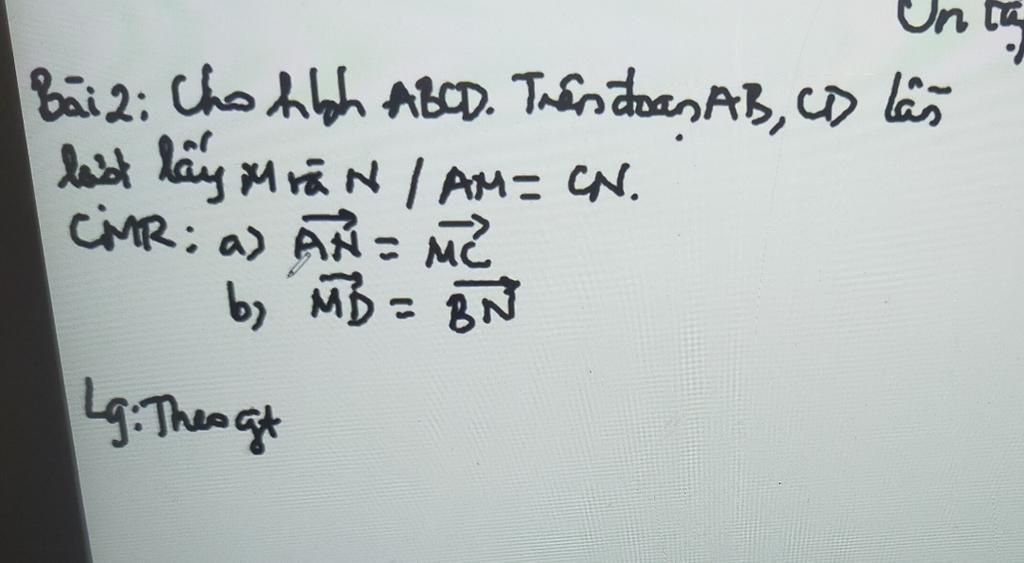 Ôn tậ
Bài 2: Cho hbh ABCD. Trên đoạn AB, CD lần
lượt lấy M và N / AM = CN.
CMR: a) \overrightarrow{AN} = \overrightarrow{MC}
b) \overrightarrow{MD} = \overrightarrow{BN}
Lg: Theo gt